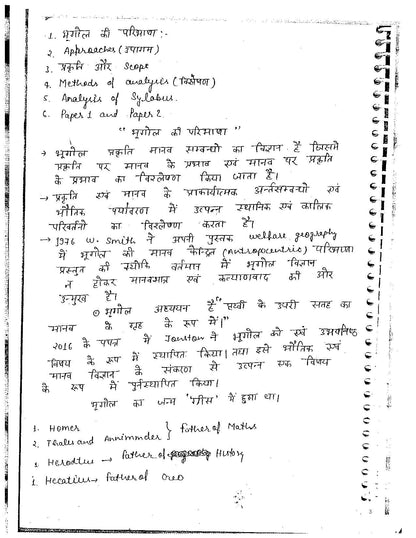 1. भूगोल की परिभाषा :-
2. Approaches (उपागम)
3. प्रकृति और Scope
4. Methods of analysis (विश्लेषण)
5. Analysis of Sylabus.
6. Paper 1 and Paper 2
" भूगोल की परिभाषा "
→ भूगोल प्रकृति मानव सम्बन्धों का विज्ञान है जिसमें
प्रकृति पर मानव के प्रभाव एवं मानव पर प्रकृति
के प्रभाव का विश्लेषण किया जाता है।
→ प्रकृति एवं मानव के अर्न्तसम्बन्धों एवं
भौतिक पर्यावरण में उत्पन्न स्थानिक एवं कालिक
परिवर्तनों का विश्लेषण करता है।
→ 1976 W. Smith ने अपनी पुस्तक welfare geography
में भूगोल की मानव केन्द्रित (Antropocentric) परिभाषा
प्रस्तुत की वर्तमान में भूगोल विज्ञान
न होकर एवं कल्याणवाद की ओर
उन्मुख है।
⊙ भूगोल अध्ययन है "पृथ्वी के उपरी सतह का
मानव के गृह के रूप में।"
2016 के में भूगोल को एवं
विषय के रूप में स्थापित किया। तथा इसे भौतिक एवं
मानव विज्ञान के से उत्पन्न एक विषय
के रूप में पुर्नस्थापित किया।
भूगोल का जन्म 'ग्रीस' में हुआ था।
1. Homer
2. Thales and } Father of Maths
1. → Father of History
1. → Father of
3